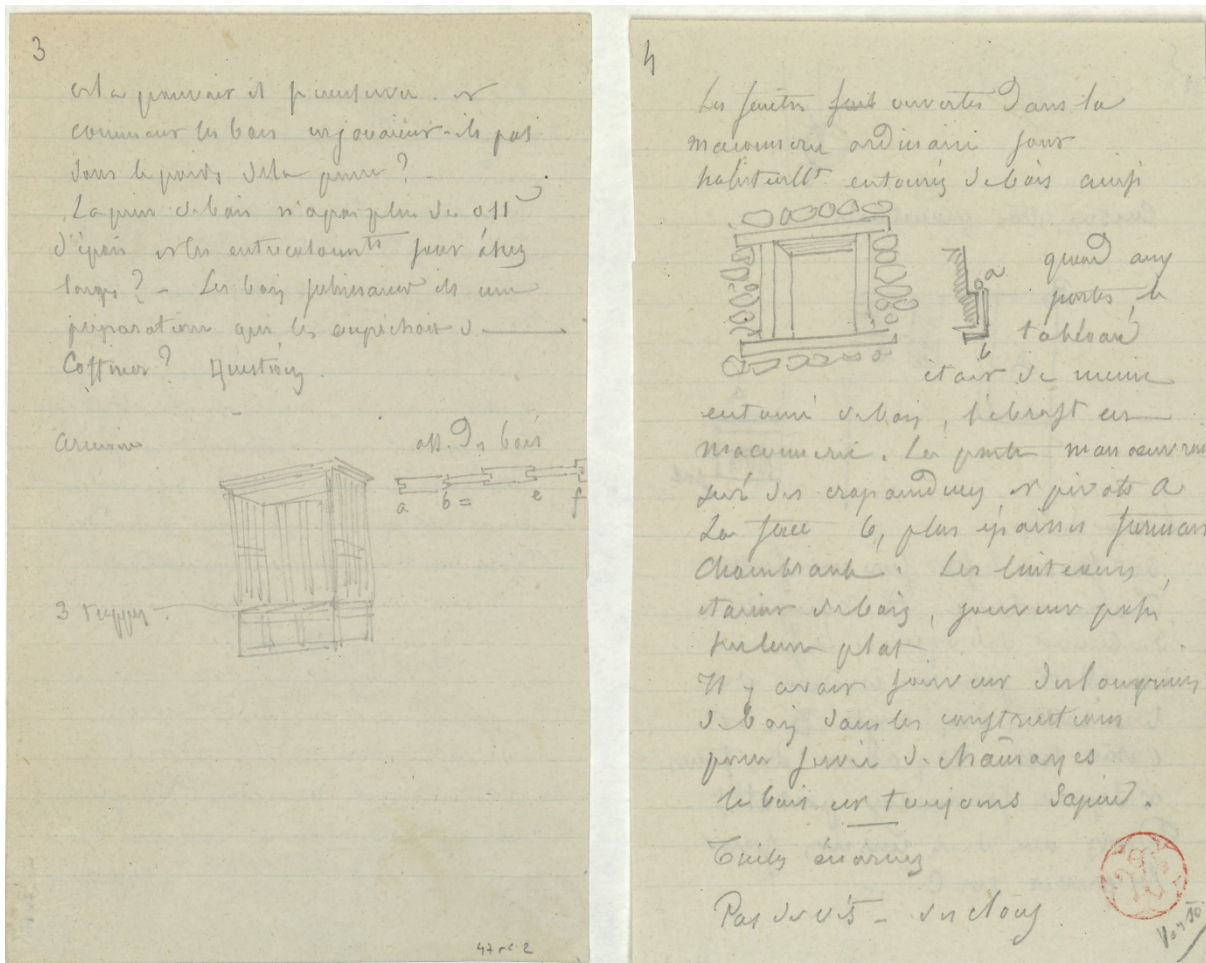 3
cela pouvait il se conserver. et
comment les bois ne jouaient-ils pas
sous le poids de la pierre ?
de bois n'a pas plus de 0,11
d'épais et les entrecolonnts sont assez
larges ? - Les bois subissaient ils une
préparation qui les empêchait de
Coffiner ? questions
armoire
ass. des bois
a b = e f
3
47 rc 2
4
Les fenêtres ouvertes dans la
maçonnerie ordinaire sont
habituellt entourées de bois ainsi
a
quand aux
portes, le
b
tableau
était de même
entouré de bois, l'ébrast en
maçonnerie. Les portes manoeuvraient
sur des crapaudines et pivots a
La face b, plus épaisse formant
chambranle. Les linteaux
étaient de bois, souvent posés
sur leur plat
Il y avait souvent des longrines
de bois dans les constructions
pour servir de chaînages
le bois est toujours Sapin.
Tuiles énormes
Pas de vis - des clous
Verso